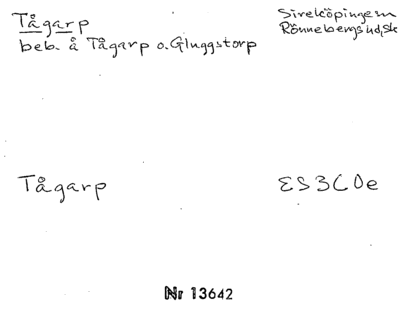 Tågarp
Sireköpinge sn
Rönnebergs hd, Sk
beb. å Tågarp o. Gluggstorp
Tågarp
ES3C0e
Nr 13642